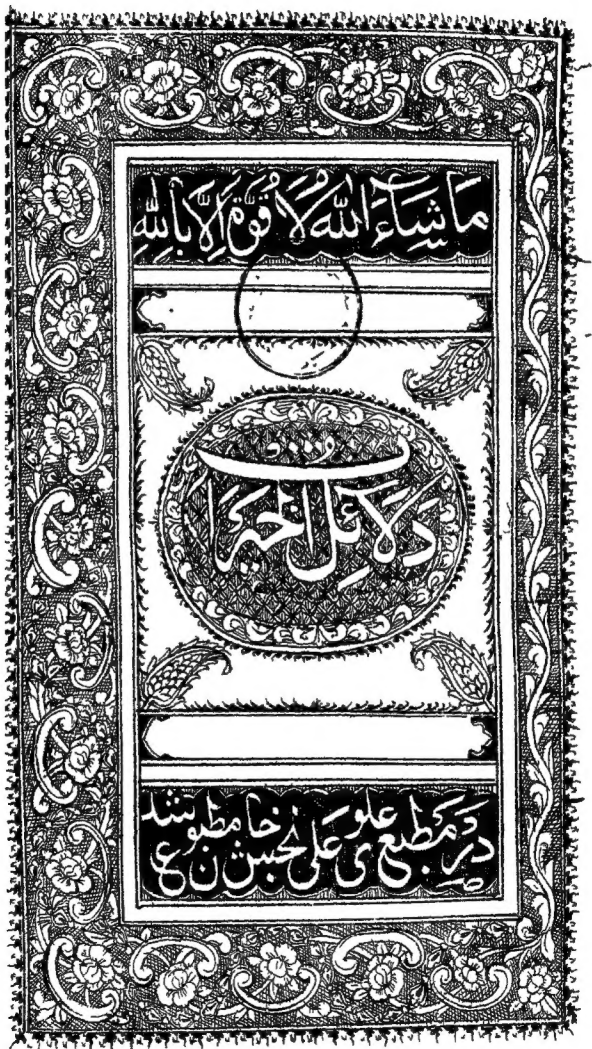 مَا شَاءَ اللهُ لَا قُوَّةَ اِلَّا بِاللهِ
دَلَائِلُ الْخَيْرَات
در مطبع علوی علی بخش خان مطبوع شد